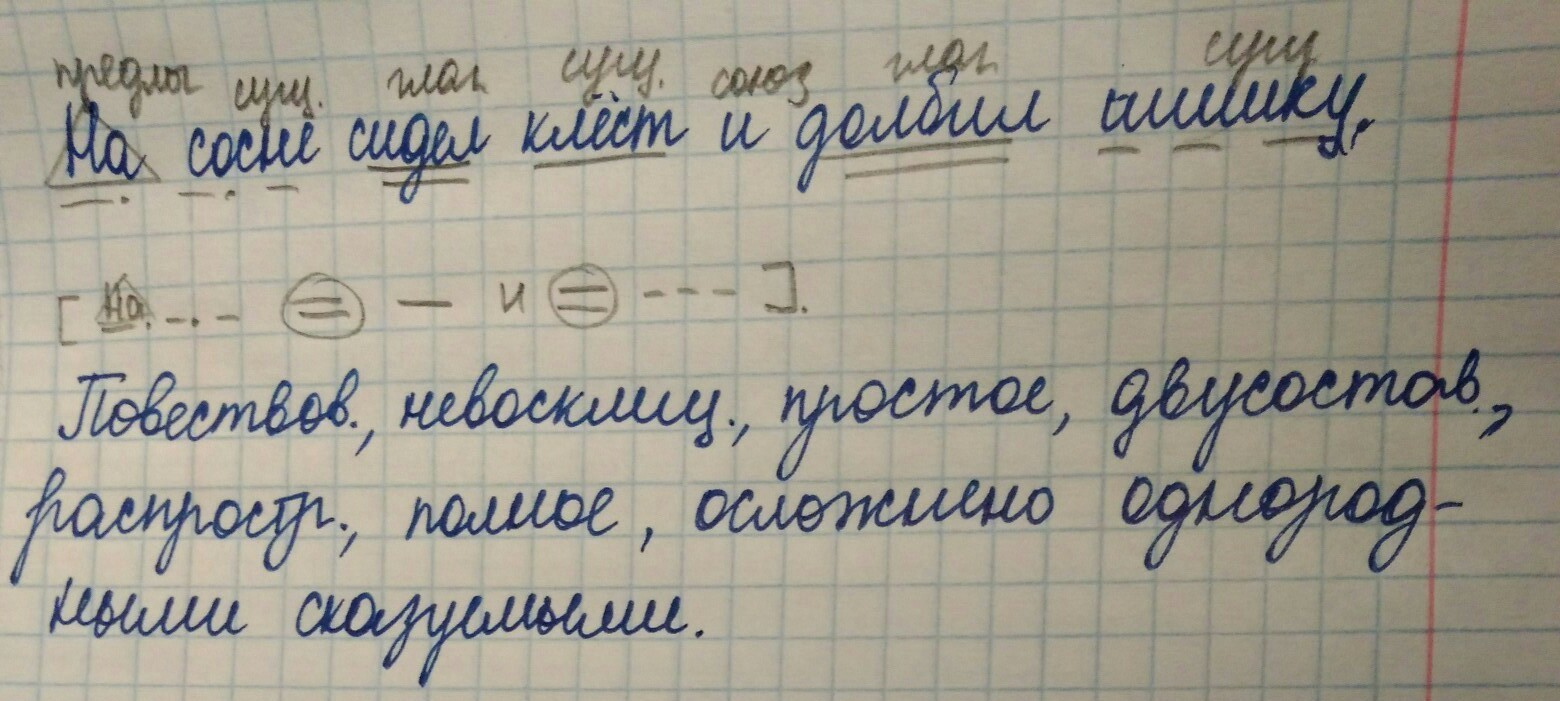 предлог сущ. глаг. сущ. союз глаг. сущ
На сосне сидел клёст и долбил шишку.
[ На и ].
Повествов., невосклиц., простое, двусостав.,
распростр., полное, осложнено однород-
ными сказуемыми.